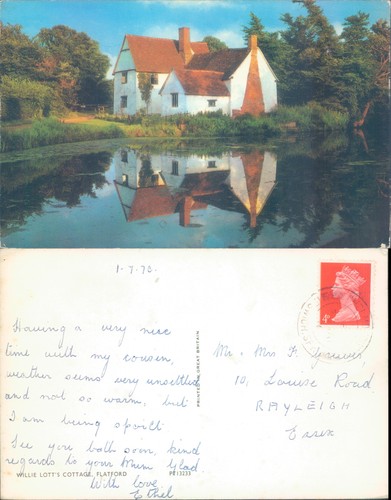 1-7-70.
Having a very nice
time with my cousin,
weather seems very unsettled
and not so warm, but
I am being spoilt.
See you both soon, kind
regards to your Mum Glad.
With love
Ethel
WILLIE LOTT'S COTTAGE, FLATFORD
PT13233
PRINTED IN GREAT BRITAIN
4D
Mr. Mrs F.
10, Louise Road
RAYLEIGH
Essex